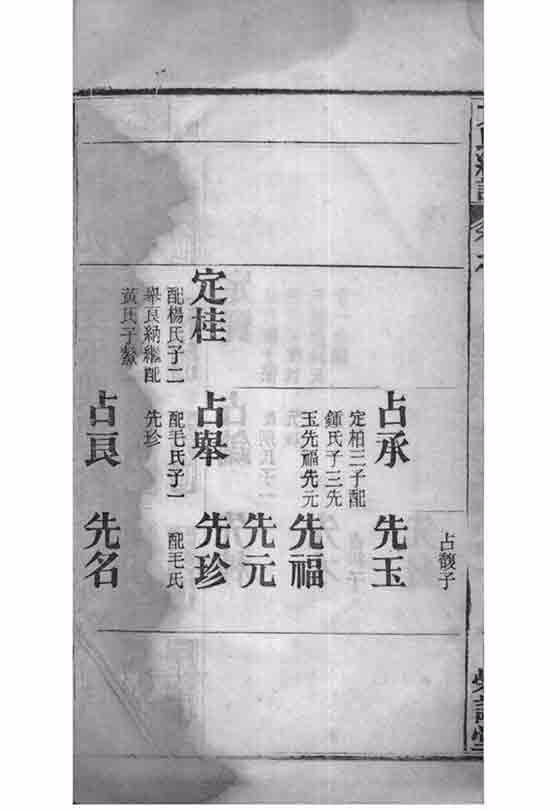 占馥子
占承
定柏三子配
鍾氏子三先
玉先福先元
先玉
先福
先元
定桂
配楊氏子二
舉良納繼配
黃氏子
占舉
配毛氏子一
先珍
先珍
配毛氏
占良
先名